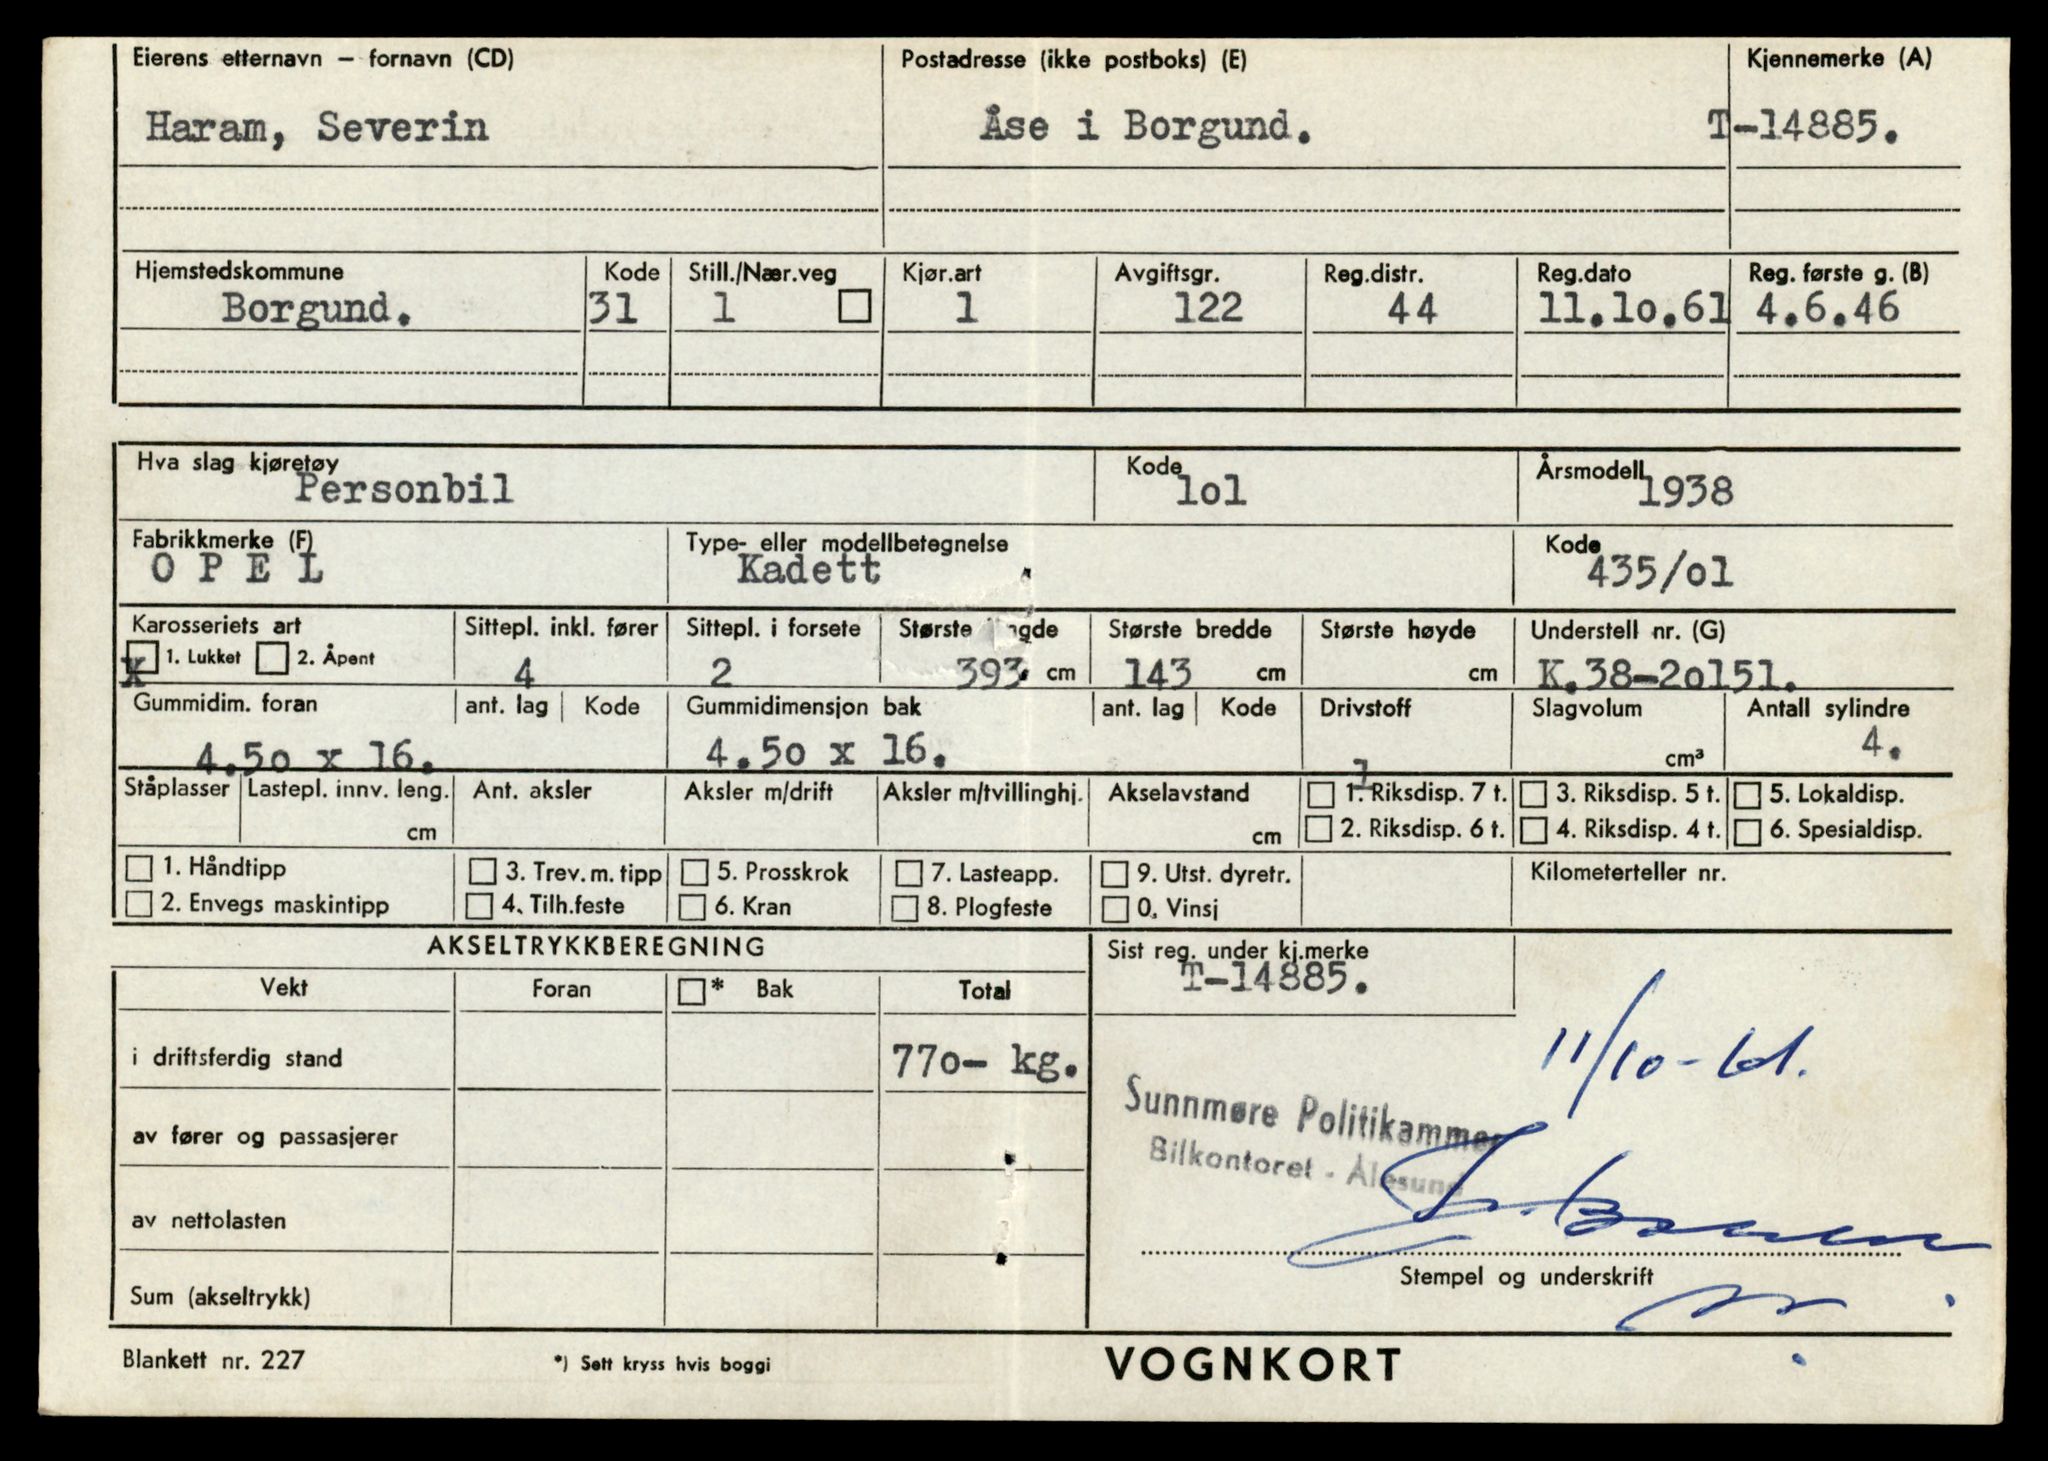 Eierens etternavn – fornavn (CD) Postadresse (ikke postboks) (E) Kjennemerke (A)
Haram, Severin Åse i Borgund. T-14885.
Hjemstedskommune Kode Still./Nær.veg Kjør.art Avgiftsgr. Reg.distr. Reg.dato Reg. første g. (B)
Borgund. 31 1 1 122 44 11.10.61 4.6.46
Hva slag kjøretøy Kode Årsmodell
Personbil 1o1 1938
Fabrikkmerke (F) Type- eller modellbetegnelse Kode
O P E L Kadett 435/o1
Karosseriets art Sittepl. inkl. fører Sittepl. i forsete Største Største bredde Største høyde Understell nr. (G)
X 1. Lukket 2. Åpent 4 2 393 cm 143 cm cm K.38-2o151.
Gummidim. foran ant. lag Kode Gummidimensjon bak ant. lag Kode Drivstoff Slagvolum Antall sylindre
4.5o x 16. 4.5o x 16. 1 cm³ 4.
Ståplasser Lastepl. innv. leng. Ant. aksler Aksler m/drift Aksler m/tvillinghj. Akselavstand 1. Riksdisp. 7 t. 3. Riksdisp. 5 t. 5. Lokaldisp.
cm cm 2. Riksdisp. 6 t. 4. Riksdisp. 4 t. 6. Spesialdisp.
1. Håndtipp 3. Trev. m. tipp 5. Prosskrok 7. Lasteapp. 9. Utst. dyretr. Kilometerteller nr.
2. Envegs maskintipp 4. Tilh.feste 6. Kran 8. Plogfeste 0. Vinsj
AKSELTRYKKBEREGNING Sist reg. under kj.merke
T-14885.
Vekt Foran * Bak Total
11/10-61.
i driftsferdig stand 77o- kg.
Sunnmøre Politikammer
av fører og passasjerer
Bilkontoret - Ålesund
av nettolasten
Stempel og underskrift
Sum (akseltrykk)
Blankett nr. 227 *) Sett kryss hvis boggi VOGNKORT